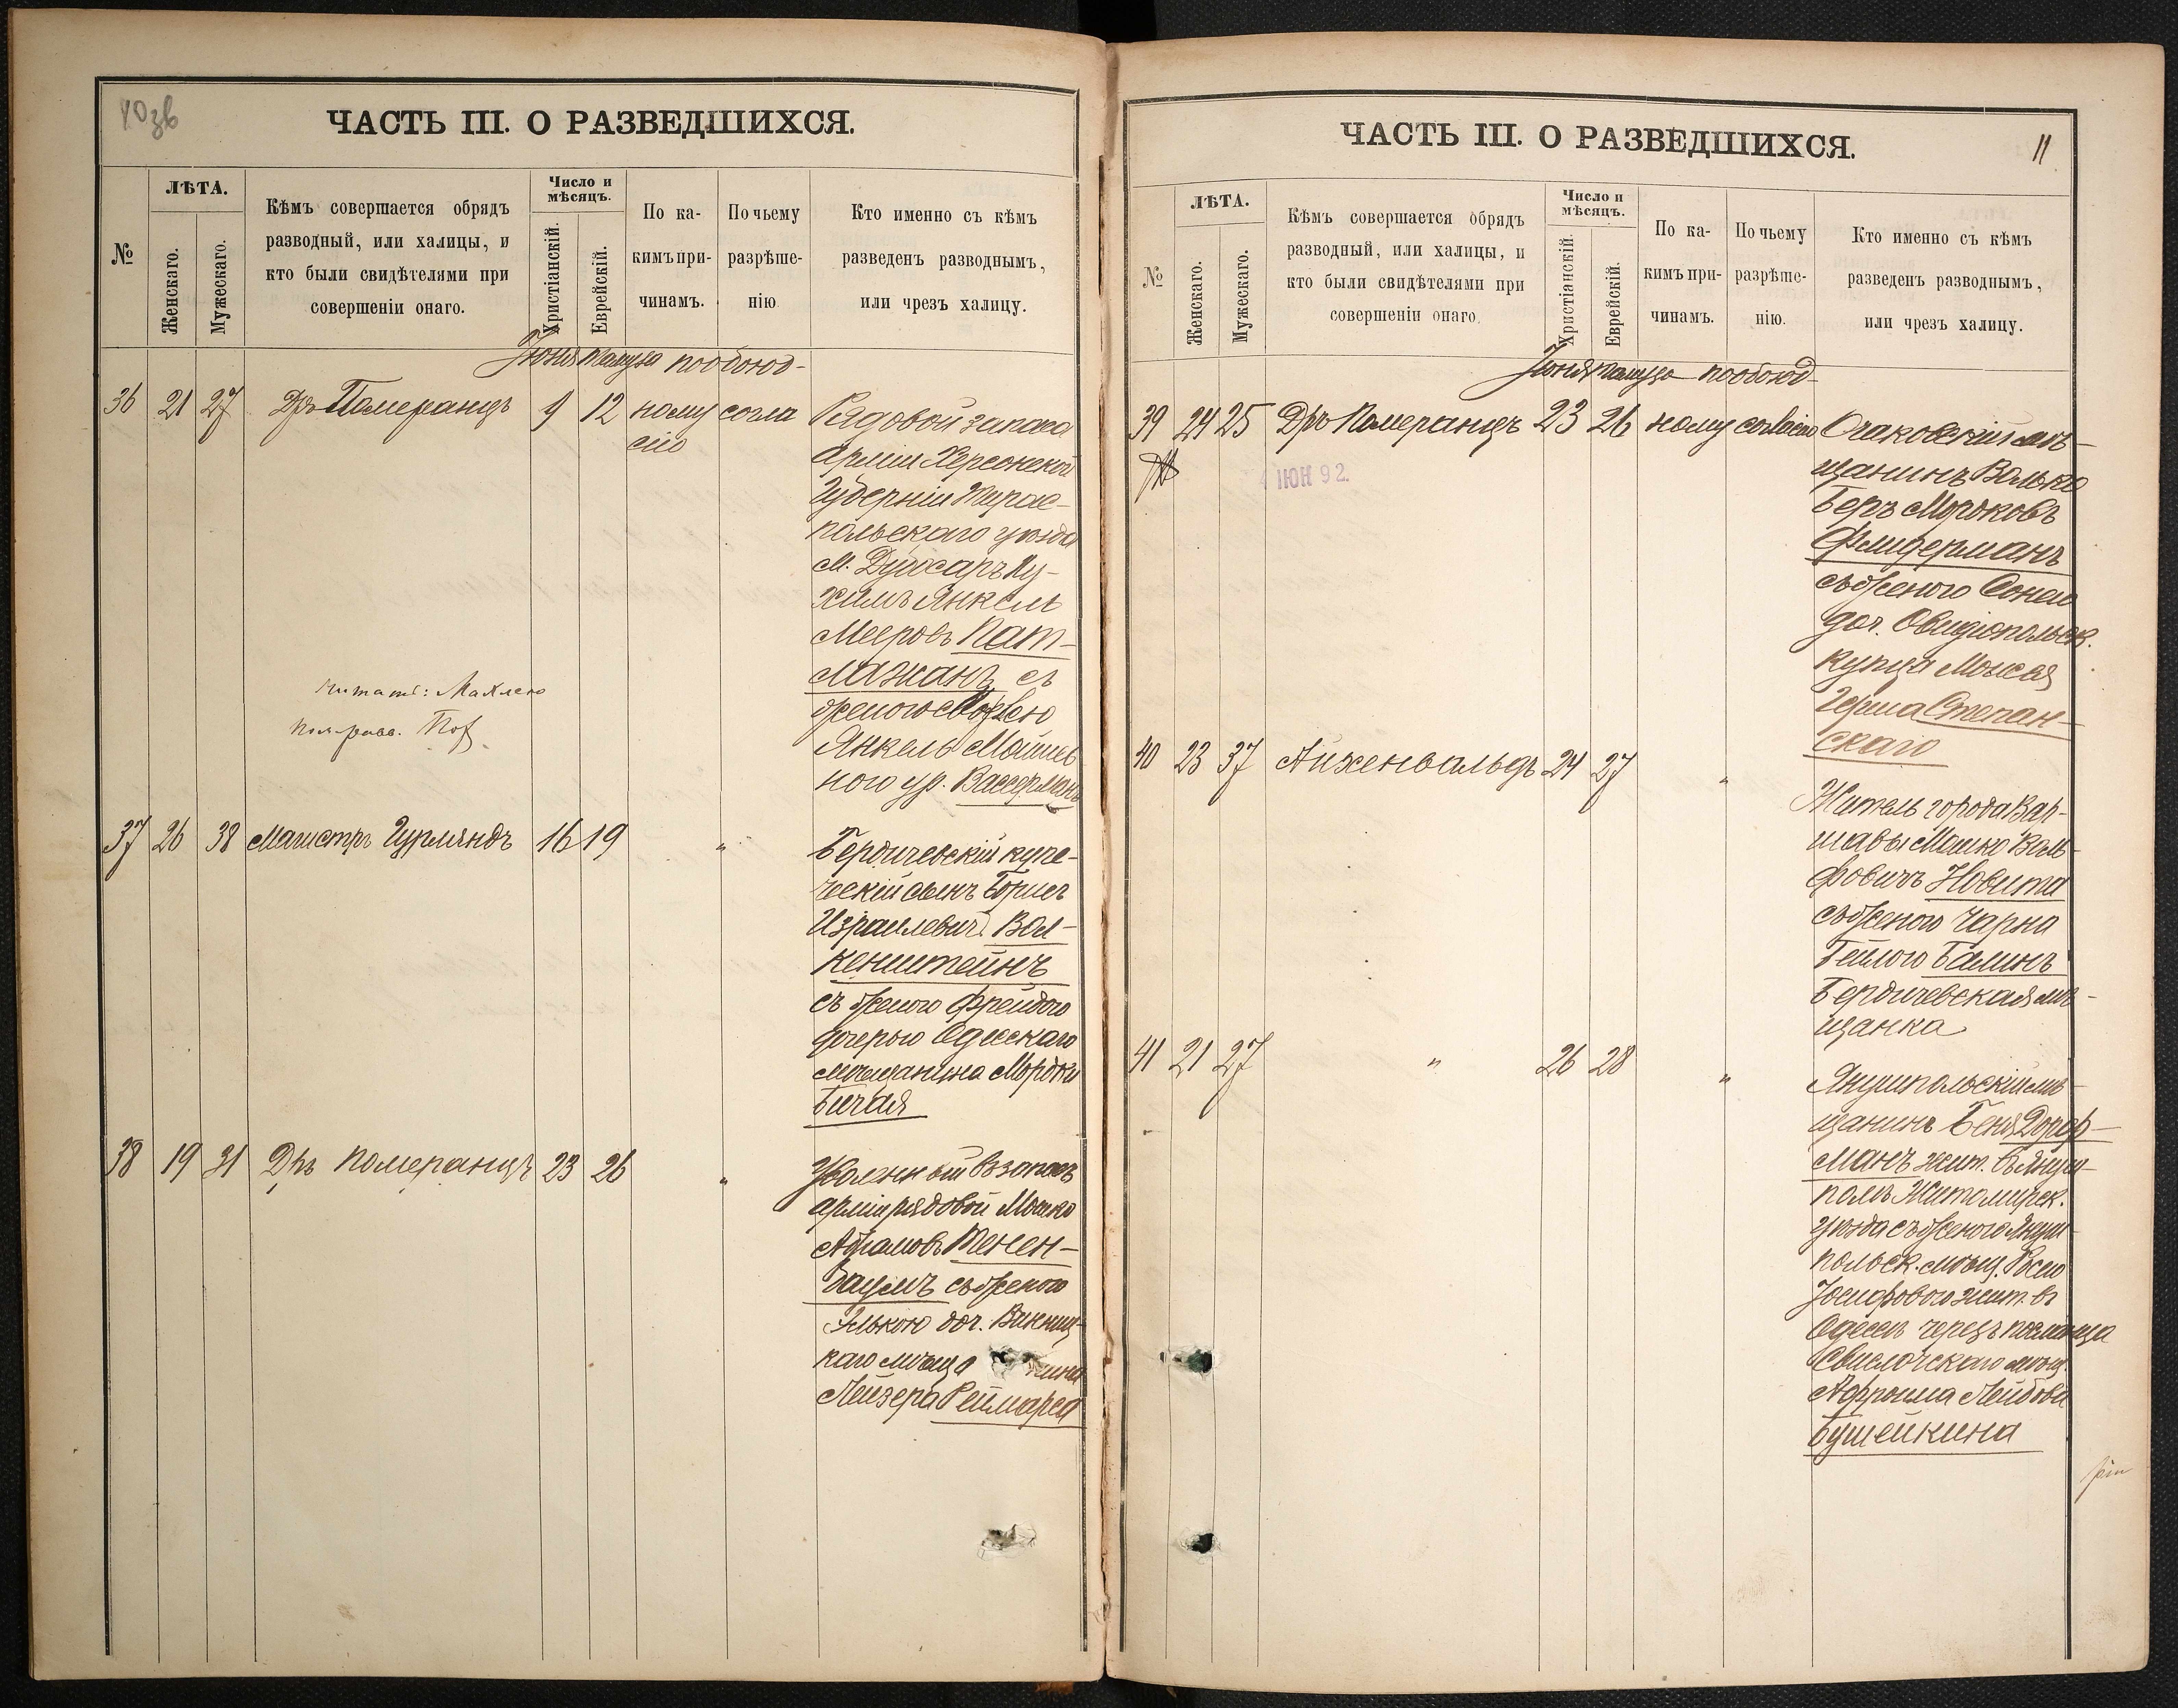 10зв
ЧАСТЬ III. О РАЗВЕДШИХСЯ.
№
ЛѢТА.
Женскаго.
Мужескаго.
Кѣмъ совершается обрядъ
разводный, или халицы, и
кто были свидѣтелями при
совершеніи онаго.
Число и
мѣсяцъ.
Христіанскій.
Еврейскій.
По ка-
кимъ при-
чинамъ.
По чьему
разрѣше-
нію
Кто именно съ кѣмъ
разведенъ разводнымъ,
или чрезъ халицу.
Іюня Тамуза по обоюд-
36 21 27 Дръ Померанцъ 9 12 ному согла
сію
Рядовой запаса
Арміи Херсонской
Губерніи Тирас-
польскаго уѣзда
М. Дубосаръ Ну-
химъ Янкель
Мееровъ Пат-
лажанъ съ
женою
Янкель Мошков
ною ур. Вассерманъ
читать: Махлею
Померанцъ
37 26 38 Магистръ Гурляндъ 16 19 "
Бердичевскій купе-
ческій сынъ Борисъ
Израилевич. Вол-
кенштейнъ
съ женою Фрейдою
дочерью Одесскаго
мѣщанина Мордки
Бичая
38 19 31 Дръ Померанцъ 23 26 "
Уволенный въ запасъ
арміи рядовой Мошко
Абрамовъ Тенен-
баумъ съ женою
Элькою доч. Винниц-
каго мѣща нина
Лейзера Реймарса
ЧАСТЬ III. О РАЗВЕДШИХСЯ.
11
№
ЛѢТА.
Женскаго.
Мужескаго.
Кѣмъ совершается обрядъ
разводный, или халицы, и
кто были свидѣтелями при
совершеніи онаго.
Число и
мѣсяцъ.
Христіанскій.
Еврейскій.
По ка-
кимъ при-
чинамъ.
По чьему
разрѣше-
нію.
Кто именно съ кѣмъ
разведенъ разводнымъ,
или чрезъ халицу.
Іюня Тамуза по обоюд-
39 24 25 Дръ Померанцъ 23 26 ному согласію
ІЮН 92.
Очаковскій мѣ-
щанинъ Волько
Беръ Мордковъ
Флидерманъ
съ женою Сонею
доч. Овидіопольск.
купца Моисея
Герша Степан-
скаго
40 23 37 Айхенвальдъ 24 27 "
Житель города Вар-
шавы Мошко Воль-
фовичъ Новита
съ женою Чарна
Гейлою Балинъ
Бердичевская мѣ-
щанка
41 21 27 " 26 28 "
Янушпольскій мѣ-
щанинъ Беня Дорф-
манъ жит. въ Янушполѣ Житомирск.
уѣзда съ женою Януш-
польск. мѣщ. Ресею
Іосифовою жит. въ
Одессѣ черезъ посланца
Свислочскаго мѣщ.
Афроима Лейбова
Бушейкина